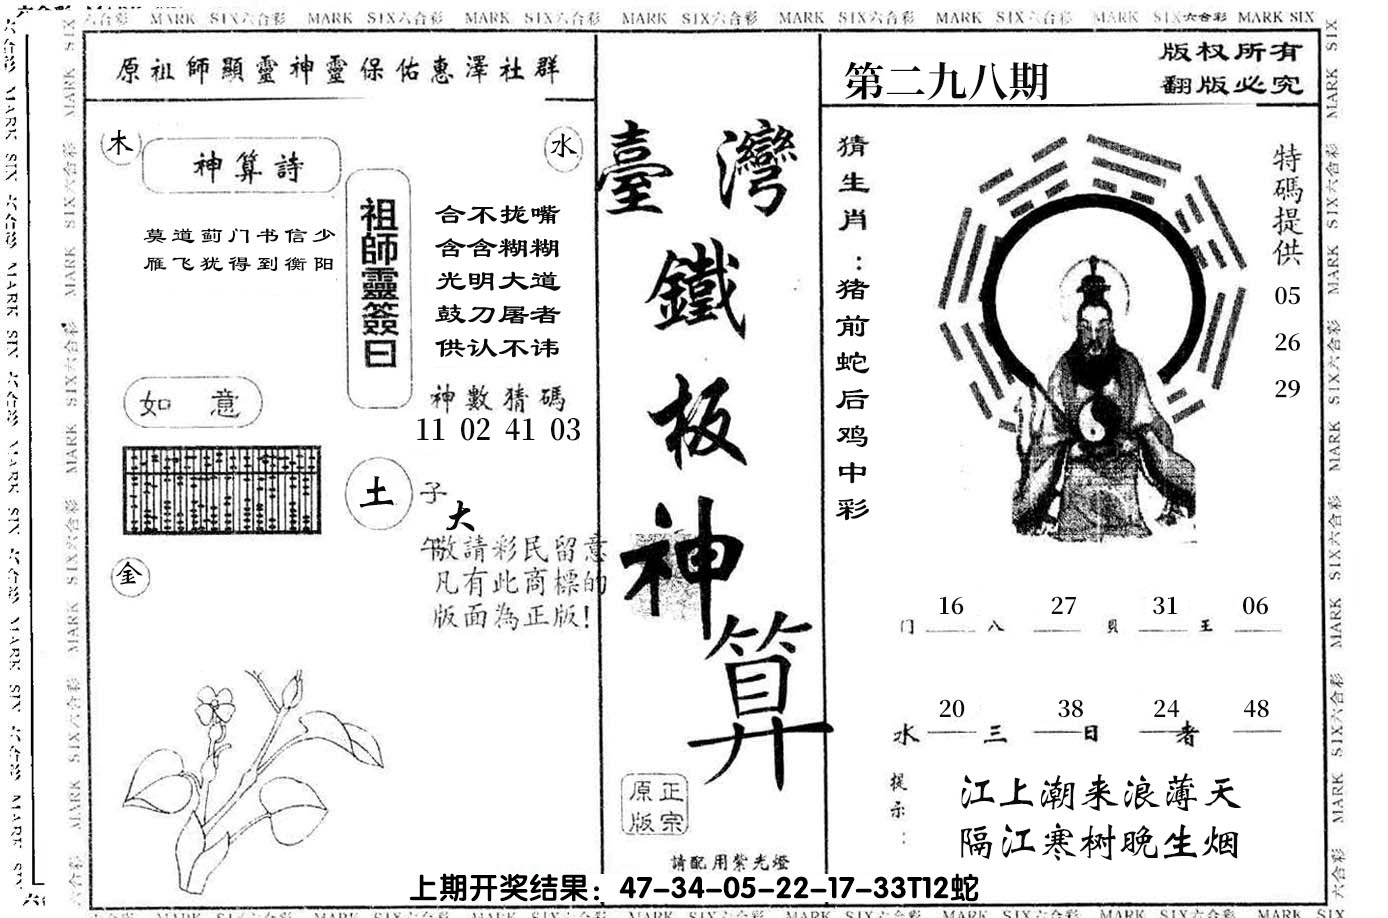 MARK SIX六合彩 MARK SIX六合彩 MARK SIX六合彩 MARK SIX六合彩 MARK SIX六合彩 MARK SIX六合彩 MARK SIX六合彩 MARK SIX
原祖師顯靈神靈保佑惠澤社群
木
神算詩
水
莫道蓟门书信少
雁飞犹得到衡阳
祖師靈簽曰
合不拢嘴
含含糊糊
光明大道
鼓刀屠者
供认不讳
神數猜碼
11 02 41 03
如 意
土
子
大
午
敬請彩民留意
凡有此商標的
版面為正版!
金
臺灣
鐵
板
神
算
正宗
原版
請配用紫光燈
第二九八期
版权所有
翻版必究
猜生肖:猪前蛇后鸡中彩
特碼提供
05
26
29
16 27 31 06
门 八 貝 王
20 38 24 48
水 三 日 者
提示:
江上潮来浪薄天
隔江寒树晚生烟
上期开奖结果：47-34-05-22-17-33T12蛇